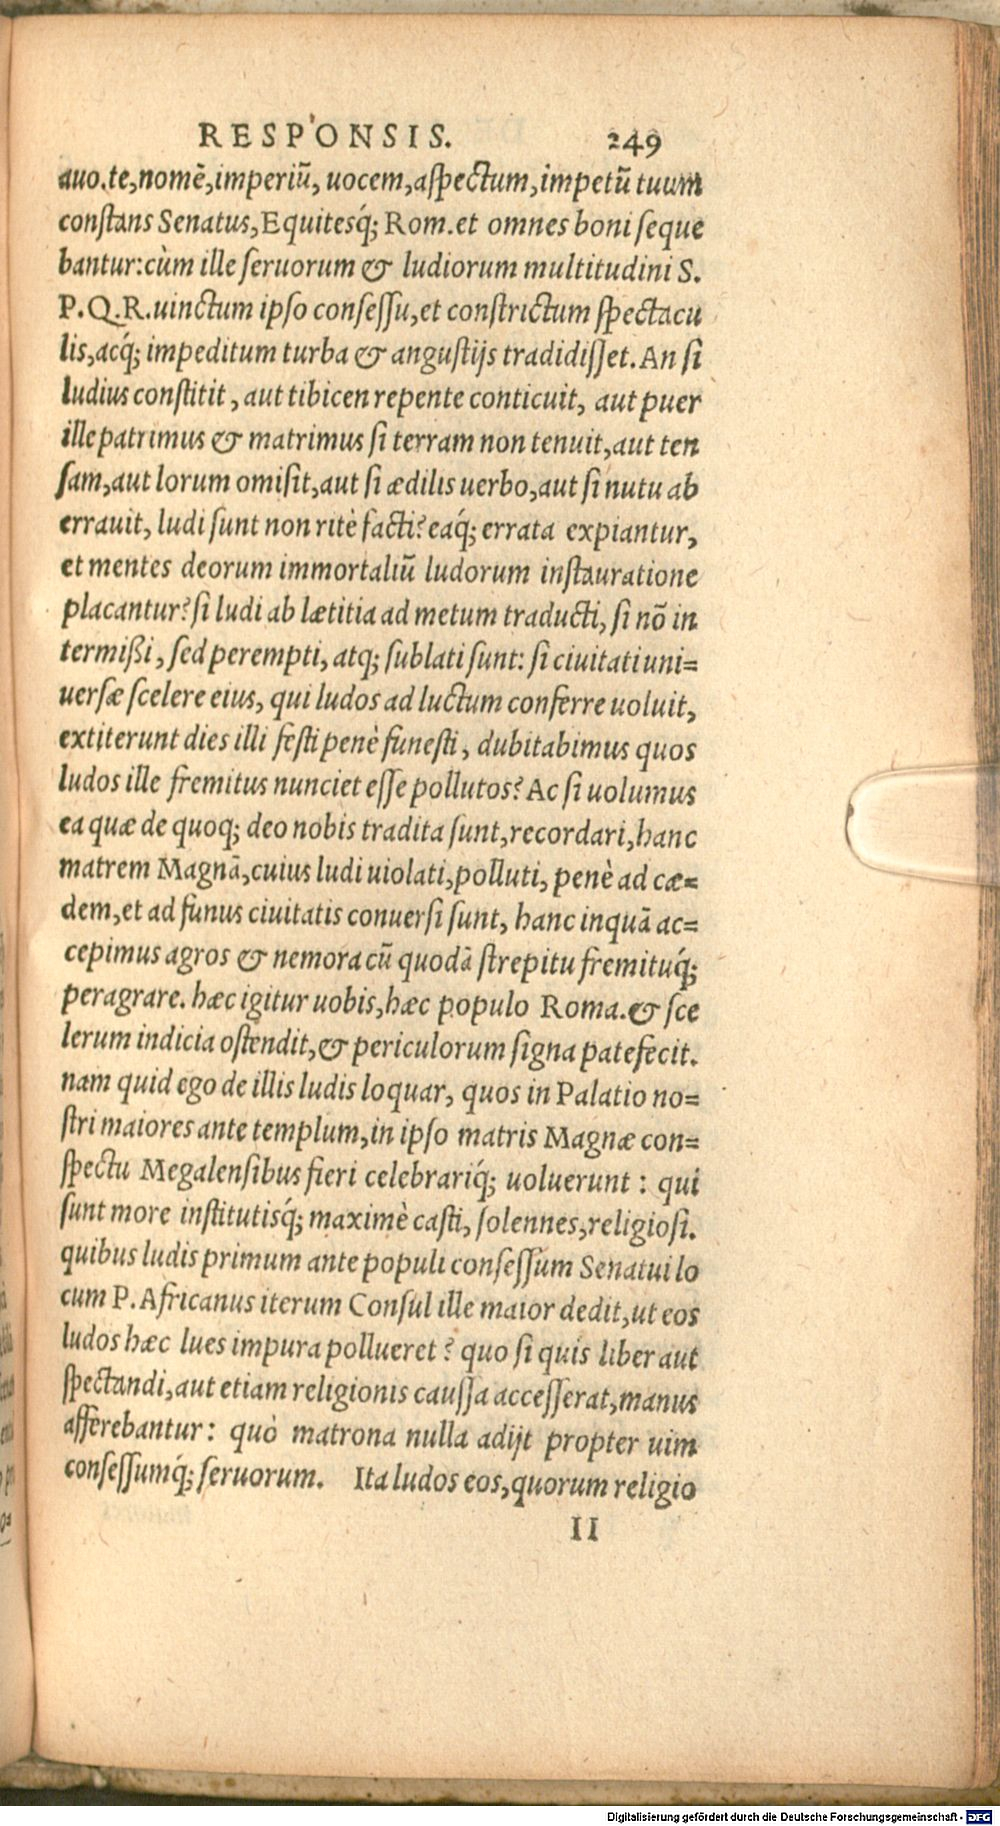 RESPONSIS. 249
auo.te,nomē,imperiū, uocem,aſpectum,impetū tuum
conſtans Senatus,Equitesq́; Rom.et omnes boni ſeque
bantur:cùm ille ſeruorum & ludiorum multitudini S.
P.Q.R.uinctum ipſo conſeſſu,et conſtrictum ſpectacu
lis,acq́; impeditum turba & anguſtijs tradidiſſet.An ſi
ludius conſtitit, aut tibicen repente conticuit, aut puer
ille patrimus & matrimus ſi terram non tenuit,aut ten
ſam,aut lorum omiſit,aut ſi ædilis uerbo,aut ſi nutu ab
errauit, ludi ſunt non ritè facti? eaq́; errata expiantur,
et mentes deorum immortaliū ludorum inſtauratione
placantur? ſi ludi ab lætitia ad metum traducti, ſi nō in
termißi, ſed perempti, atq; ſublati ſunt: ſi ciuitati uni=
uerſæ ſcelere eius, qui ludos ad luctum conferre uoluit,
extiterunt dies illi feſti penè funeſti, dubitabimus quos
ludos ille fremitus nunciet eſſe pollutos? Ac ſi uolumus
ea quæ de quoq; deo nobis tradita ſunt,recordari,hanc
matrem Magnā,cuius ludi uiolati,polluti, penè ad cæ=
dem,et ad funus ciuitatis conuerſi ſunt, hanc inquā ac=
cepimus agros & nemora cū quodā ſtrepitu fremituq́;
peragrare. hæc igitur uobis,hæc populo Roma.& ſce
lerum indicia oſtendit,& periculorum ſigna patefecit.
nam quid ego de illis ludis loquar, quos in Palatio no=
ſtri maiores ante templum,in ipſo matris Magnæ con=
ſpectu Megalenſibus fieri celebrariq́; uoluerunt: qui
ſunt more inſtitutisq́; maximè caſti, ſolennes,religioſi.
quibus ludis primum ante populi conſeſſum Senatui lo
cum P.Africanus iterum Conſul ille maior dedit,ut eos
ludos hæc lues impura pollueret? quo ſi quis liber aut
ſpectandi,aut etiam religionis cauſſa acceſſerat,manus
afferebantur: quò matrona nulla adijt propter uim
conſeſſumq́; ſeruorum. Ita ludos eos,quorum religio
II
Digitalisierung gefördert durch die Deutsche Forschungsgemeinschaft - DFG